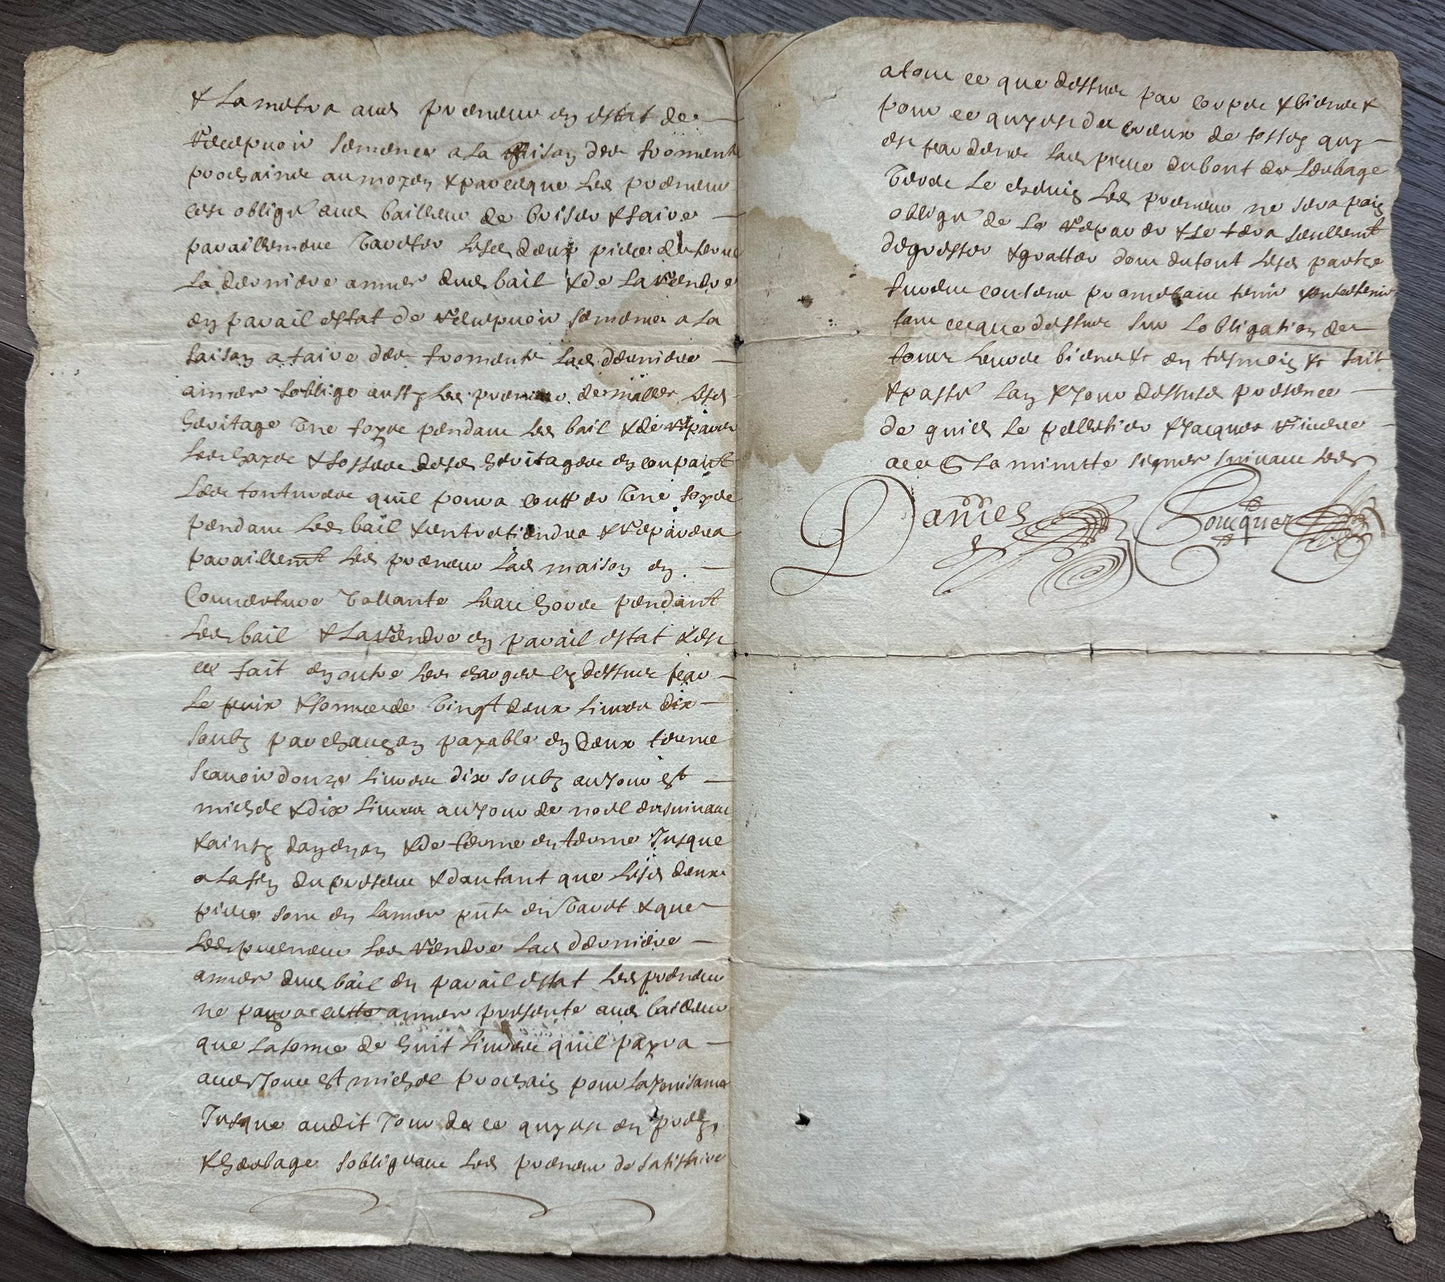 & La metra aud preneur en estat de
recepvoir semence a la saison des froments
prochaine au moyen & parceque led preneur
cest obligé aud bailleur de briser & faire
pareillement lesd deux pieces de terre
la derniere annee dud bail & de la rendre
en pareil estat de recepvoir semence a la
saison a faire des froments lad derniere
annee soblige aussy led preneur de maller lesd
heritage une foye pendant led bail & de reparer
les hayes & fossees desd heritages en coupant
les tontures quil poura coupper une foye
pendant led bail & entretiendra & reparera
pareillemt led preneur lad maison en
Couverture vollante leau hors pendant
led bail & la rendre en pareil estat & est
ce fait en outre les charges cy dessus par
le prix & somme de vingt deux livres dix
soubz par chaucan payable en deux terme
scavoir douze livres dix soubz au jour st
michel & dix livres au jour de noel ensuivant
& ainsy dan en an & de terme en terme Jusque
a la fin du present & dautant que lesd deux
pieces sont en lannee pnte en & que
led preneur les rendre lad derniere
annee dud bail en pareil estat led preneur
ne payra cette annee presente aud bailleur
que la somme de huit livres quil payra
aud Jour st michel prochain pour la Jouisance
Jusque audit Jour de ce quy est en prey
& herbage sobligeant led preneur de satisfaire
a tout ce que dessus par corps & biens &
pour ce quy est du creux de fossey quy
est fait dans lad piece du bout de lerbage
vers le chemin led preneur ne sera pas
obligé de le reparer & le fera seullemt
degresser & gratter dont du tout lesd partye
furent contens promettant tenir & entretenir
tout ce que dessus sur lobligation de
tous leurs biens &c en tesmoin &c fait
& passé lan & jour dessusd presence
de guille le pelletier & Jacques
a ce La minutte signee suivant led
Daniel Bouquet